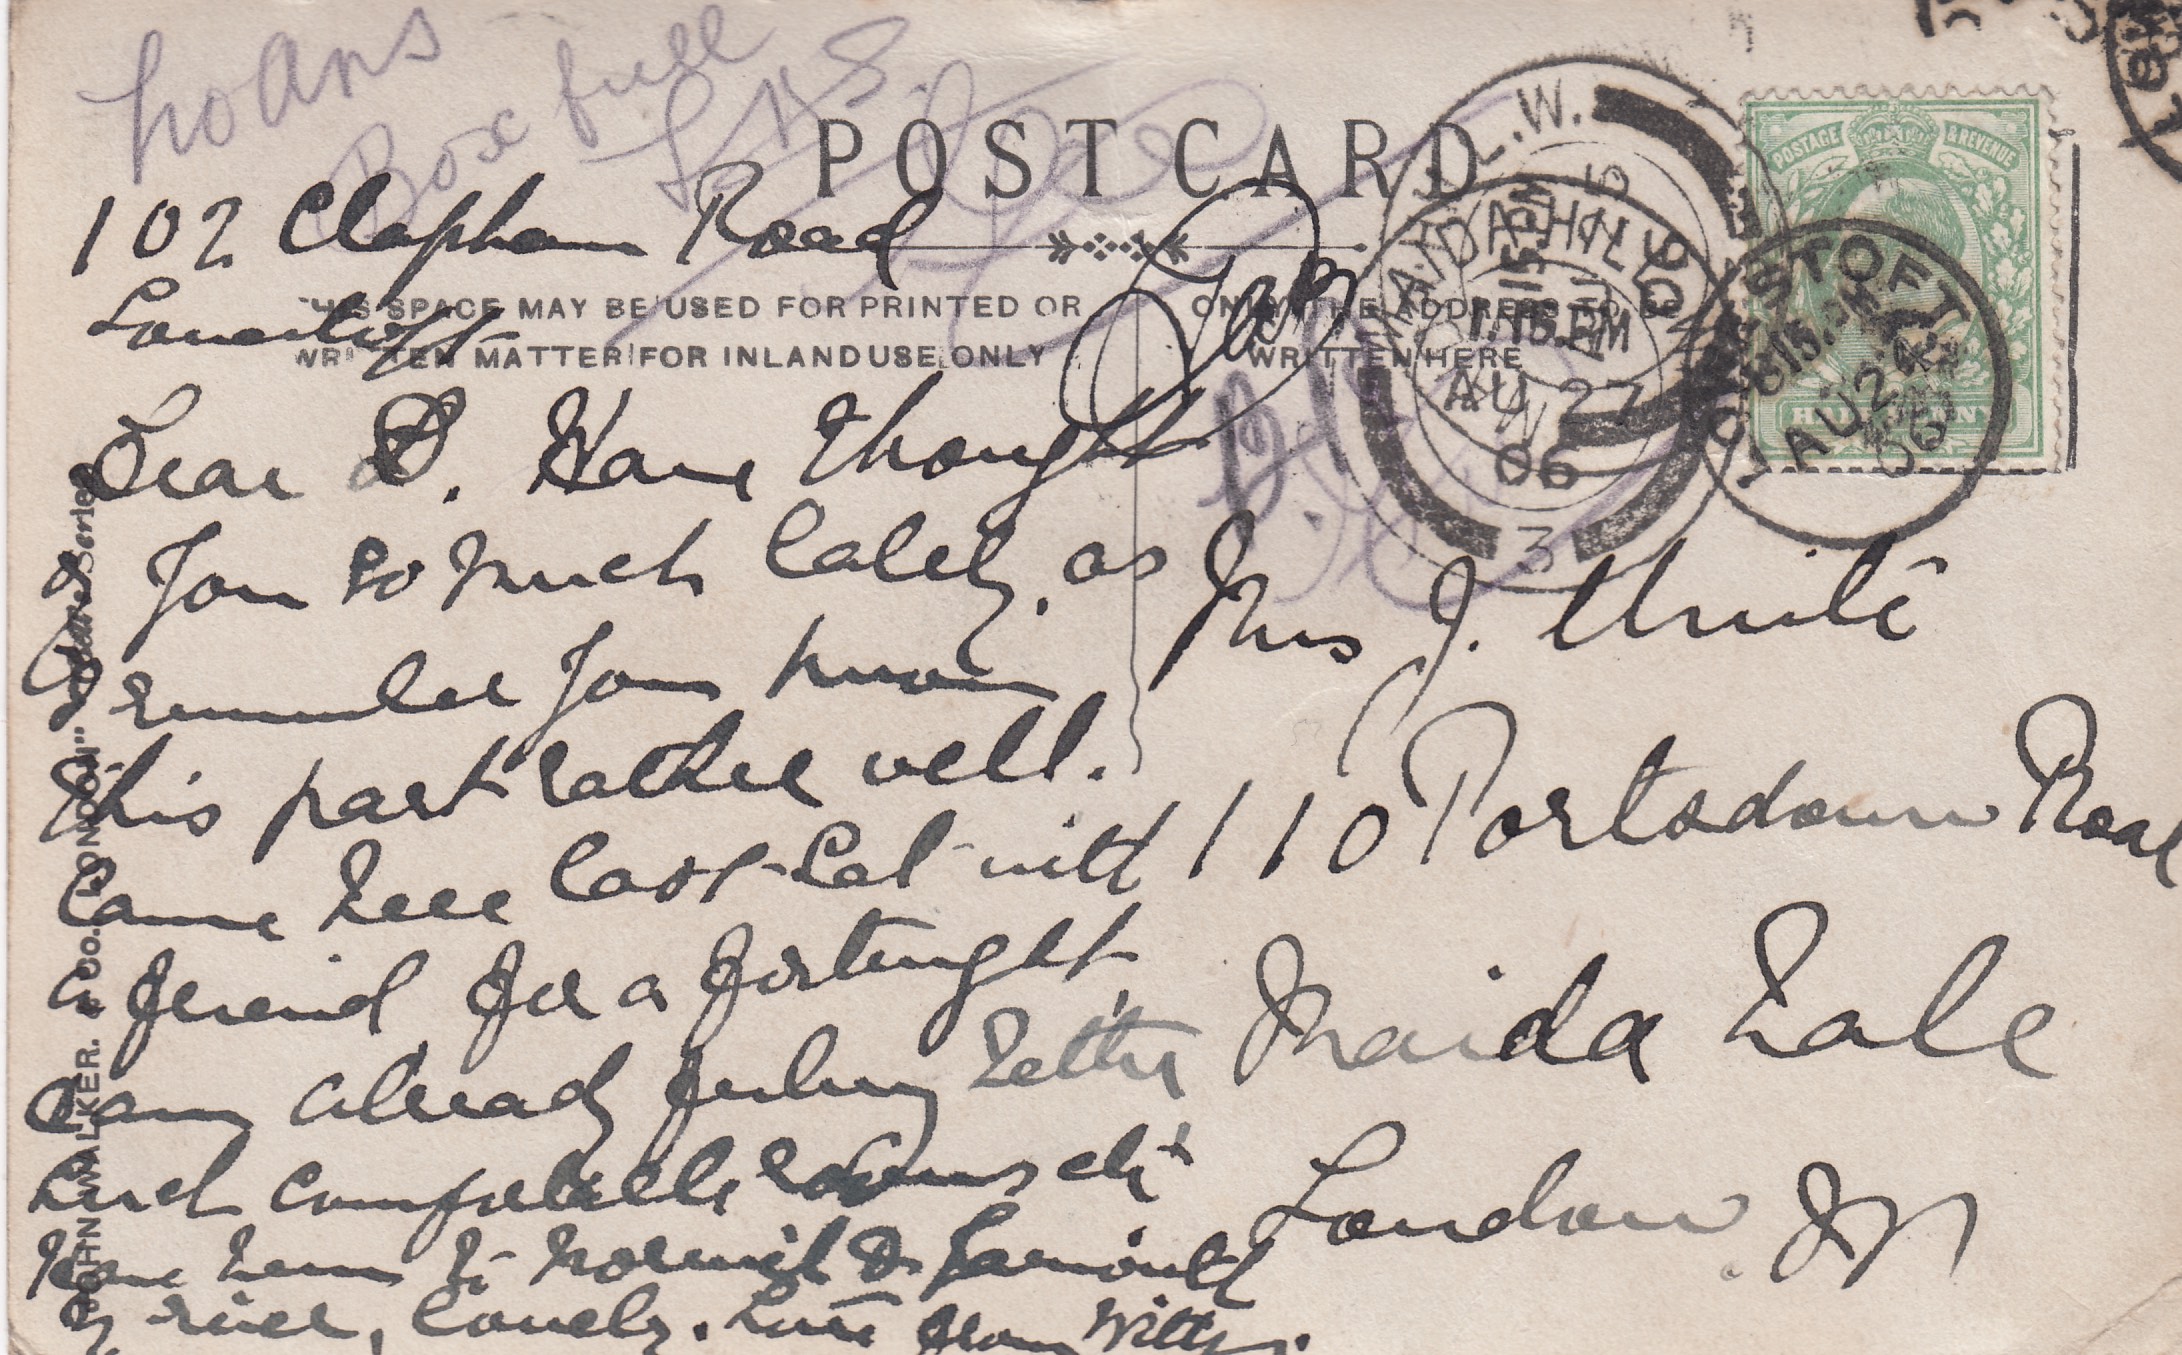 hoans
Box full
POST CARD
102 Clapham Road
Lowestoft
THIS SPACE MAY BE USED FOR PRINTED OR
WRITTEN MATTER FOR INLAND USE ONLY
ONLY THE ADDRESS TO BE
WRITTEN HERE
Dear D. Have thought
you so much lately, as
remember you know
this part rather well.
Came here last Sat with
a friend for a fortnight
am already feeling better
Such comfortable rooms
Have been to Norwich & Yarmouth
by river, lovely. Love from Witty.
Mrs J. Unite
110 Portsdown Road
Maida Vale
London W
POSTAGE & REVENUE
HALFPENNY
LOWESTOFT
8.15 PM
AU 24
06
MAIDA HILL
1.15 PM
AU 27
06
3
JOHN WALKER & CO. LONDON "Series